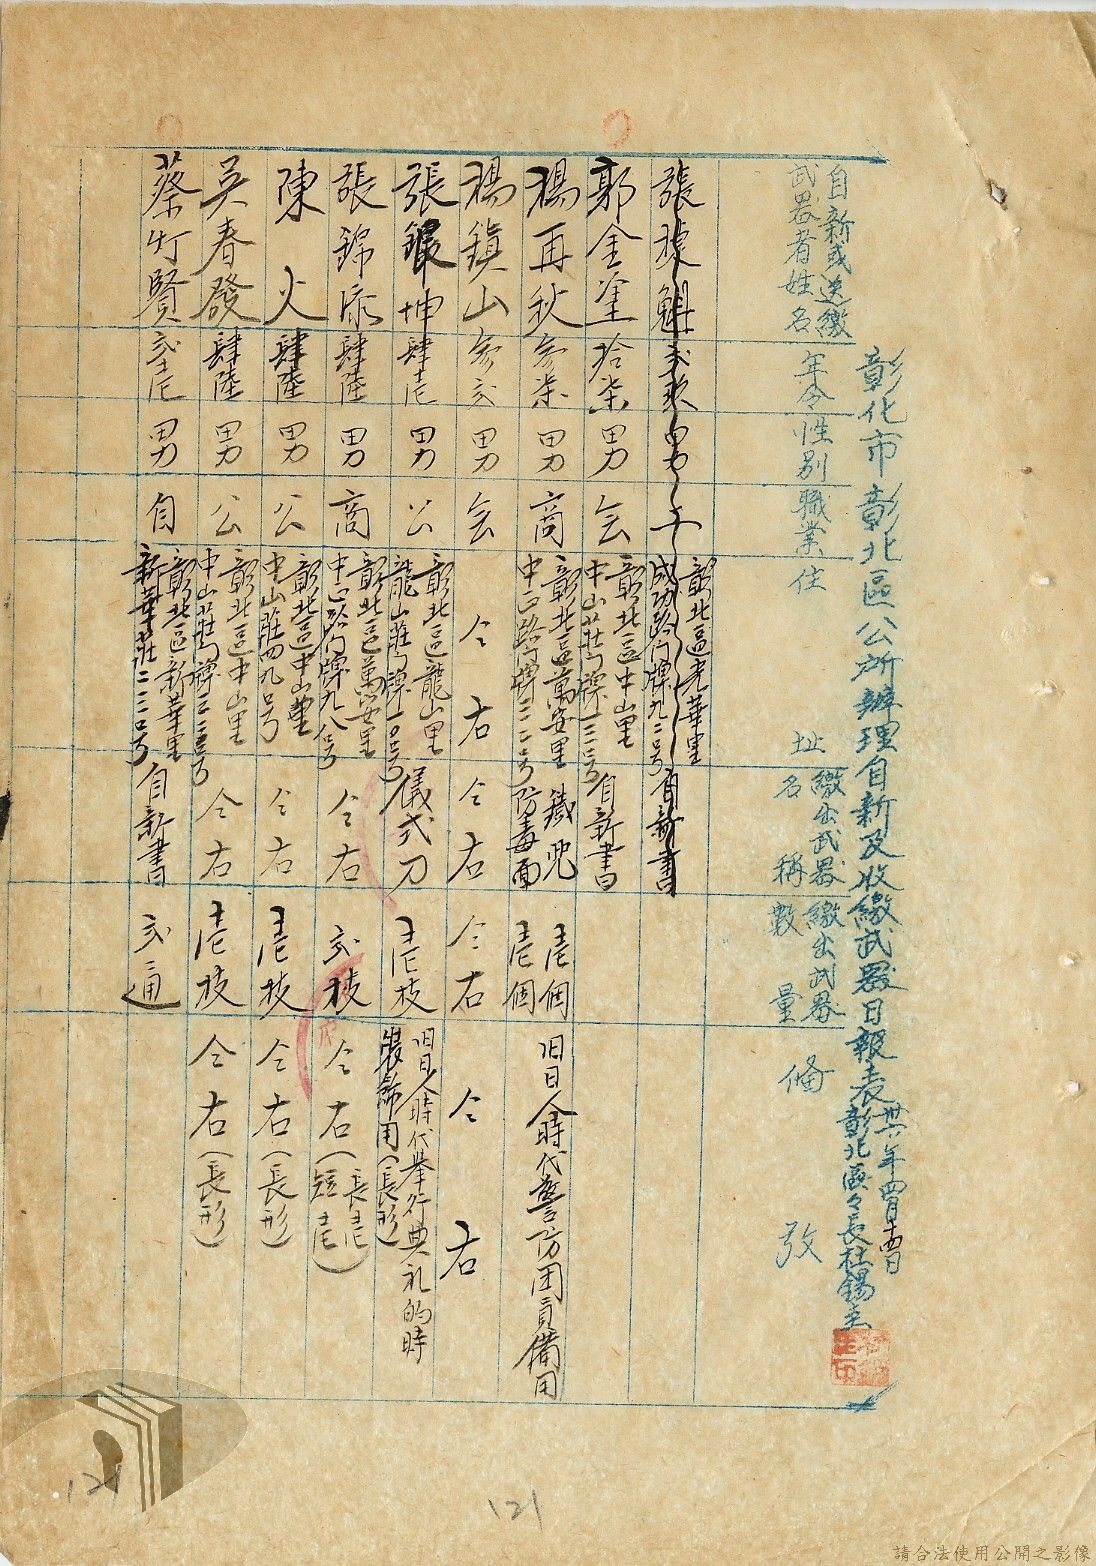 彰化市彰北區公所辦理自新及收繳武器日報表
卅六年四月十四日
彰北區々長杜錫圭
自新或送繳武器者姓名
年令
性別
職業
住址
繳出武器名稱
繳出武器數量
備攷
張 魁 男
彰北區光華里成功路門牌九二號
自新書
郭金塗 拾柒 男 会
彰北區中山里中山莊門牌一三三号
自新書
楊再秋 参柒 男 商
彰北區萬安里中正路門牌三二二号
鐵兜 壱個
防毒面 壱個
旧日人時代警防团員備用
楊鎮山 参弍 男 会
仝右
仝右
仝右
仝右
張銀坤 肆壱 男 公
彰北區龍山里龍山莊門牌一〇号
儀式刀
壱枝
旧日人時代挙行典礼的時裝飾用(長形)
張錦添 肆陸 男 商
彰北區萬安里中正路门牌九八号
仝右
弍枝
仝右(長壱短壱)
陳火 肆陸 男 公
彰北區中山里中山莊四九号
仝右
壱枝
仝右(長形)
吳春發 肆陸 男 公
彰北區中山里中山莊门牌二三三号
仝右
壱枝
仝右(長形)
蔡竹賢 弍壱 男 自
彰北區新華里新華莊二三〇号
自新書
弍通
121
121
請合法使用公開之影像